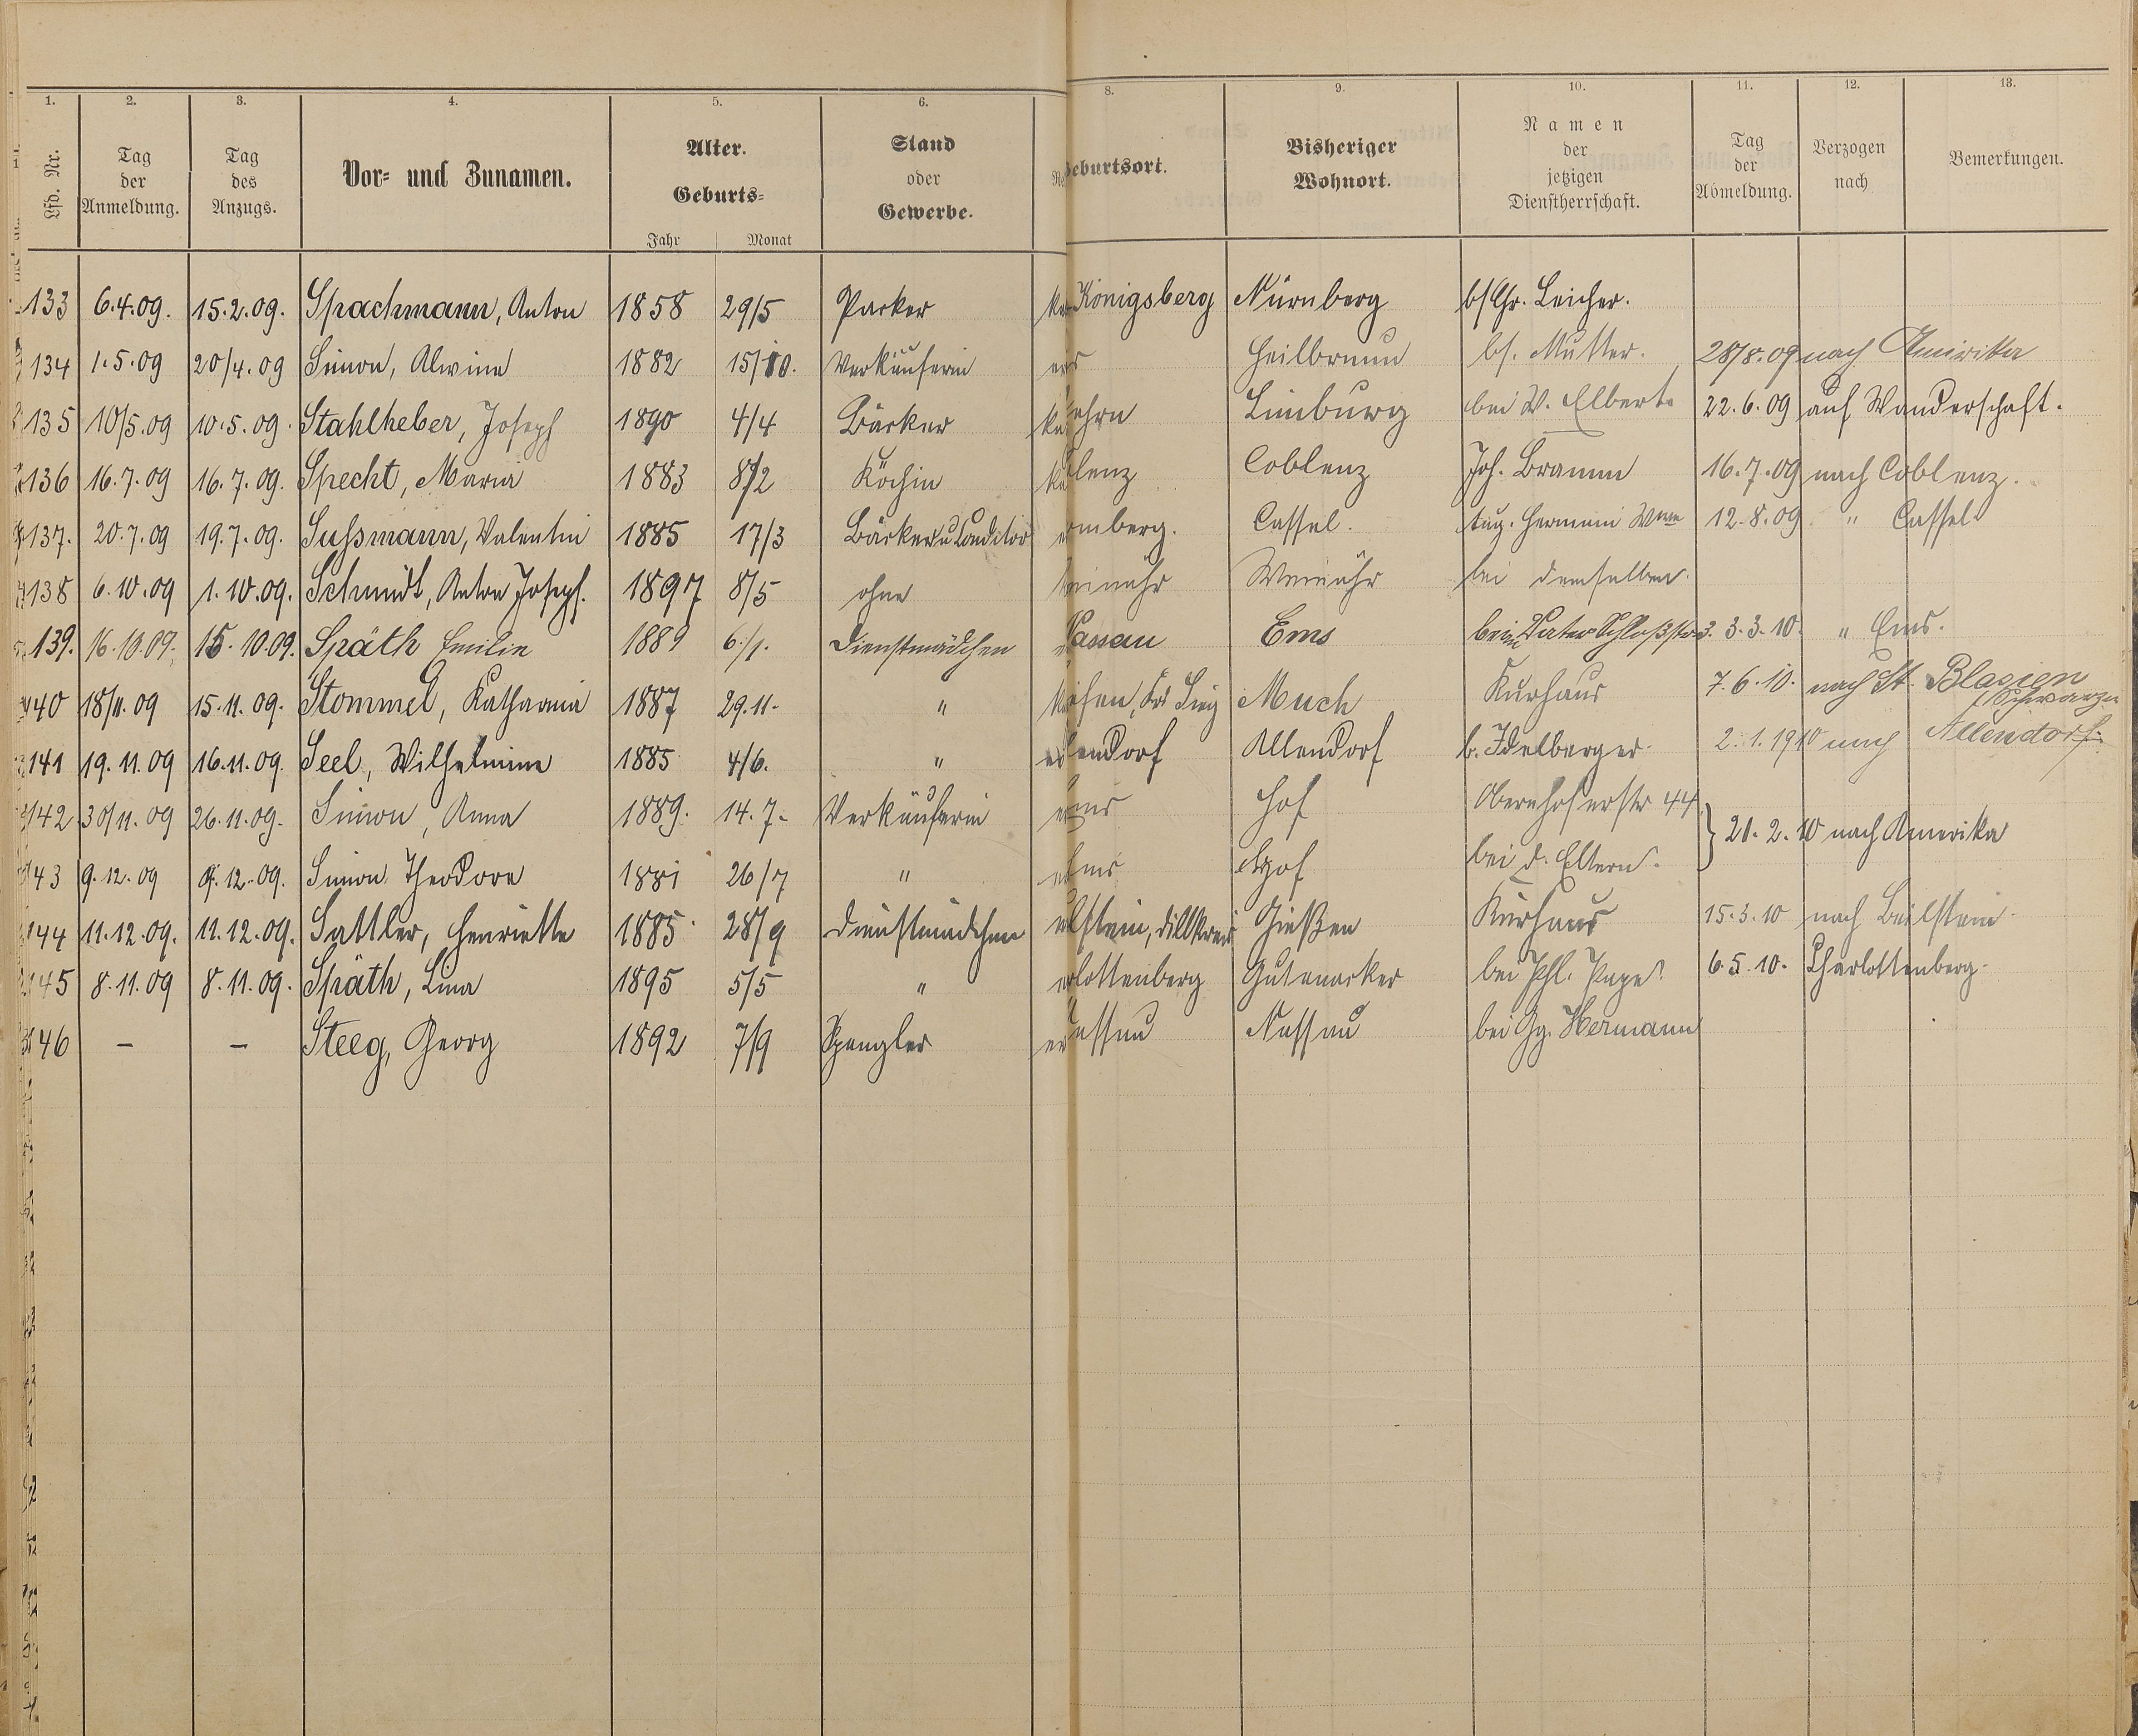 1. 2. 3. 4. 5. 6. 8. 9. 10. 11. 12. 13.
Lfd. Nr. Tag der Anmeldung. Tag des Anzugs. Vor- und Zunamen. Alter. Geburts- Jahr Monat Stand oder Gewerbe. Geburtsort. Bisheriger Wohnort. Namen der jetzigen Dienstherrschaft. Tag der Abmeldung. Verzogen nach Bemerkungen.
133 6.4.09. 15.2.09. Spachmann, Anton 1858 29/5 Parker Königsberg Nürnberg b/ Chr. Leicher.
134 1.5.09 20/4.09 Simon, Alwine 1882 15/10. Verkäuferin Heilbronn bs. Mutter. 28/8.09 nach Amerika
135 10/5.09 10.5.09. Stahlheber, Joseph 1890 4/4 Bäcker ehrn Limburg bei W. Elbert. 22.6.09 auf Wanderschaft.
136 16.7.09 16.7.09. Specht, Maria 1883 8/2 Köchin lenz Coblenz Joh. Bramm 16.7.09 nach Coblenz.
137. 20.7.09 19.7.09. Sussmann, Valentin 1885 17/3 Bäcker u Conditor mberg. Cassel. Aug. Hermani Wwe 12.8.09 " Cassel.
138 6.10.09 1.10.09. Schmidt, Anton Joseph. 1897 8/5 ohne einähr Weinähr bei demselben.
139. 16.10.09. 15.10.09. Späth Emilie 1889 6./1. Dienstmädchen Nassau Ems beim Vater Schloßstr 3. 3.3.10. " Ems.
40 18/11.09 15.11.09. Stommel, Katharina 1887 29.11. " Much Kurhaus 7.6.10. nach St. Blasien
141 19.11.09 16.11.09. Seel, Wilhelmine 1885 4/6. " endorf Allendorf b. Idelberger. 2.1.1910 nach Allendorf.
142 30/11.09 26.11.09. Simon, Anna 1889. 14.7. Verkäuferin Hof Obernhoferstr 44 } 21.2.10 nach Amerika
43 9.12.09 9.12.09. Simon Theodore 1881 26/7 " Hof bei d. Eltern.
144 11.12.09. 11.12.09. Sattler, Henriette 1885 28/9 Dienstmädchen lstein, Dillkreis Gießen Kurhaus 15.3.10 nach Beilstein
145 8.11.09 8.11.09. Späth, Lina 1895 5/5 " lottenberg Gutenacker bei Phl. Pape. 6.5.10. Charlottenberg.
46 – – Steeg, Georg 1892 7/9 Spengler assau Nassau bei Gg. Hermann